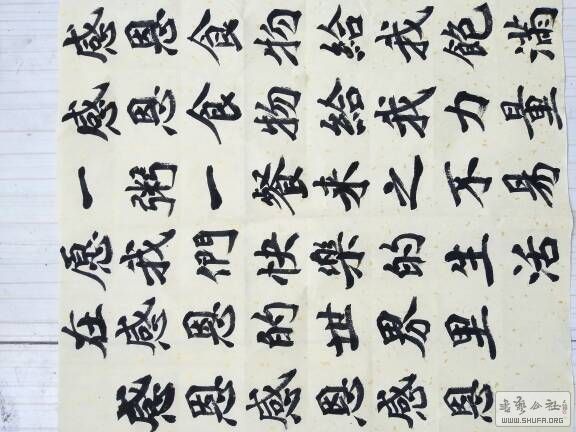 感恩食物給我飽滿
感恩食物給我力量
一粥一餐来之不易
愿我們快樂的生活
在感恩的世界里
感恩感恩感恩
书艺公社
WWW.SHUFA.ORG